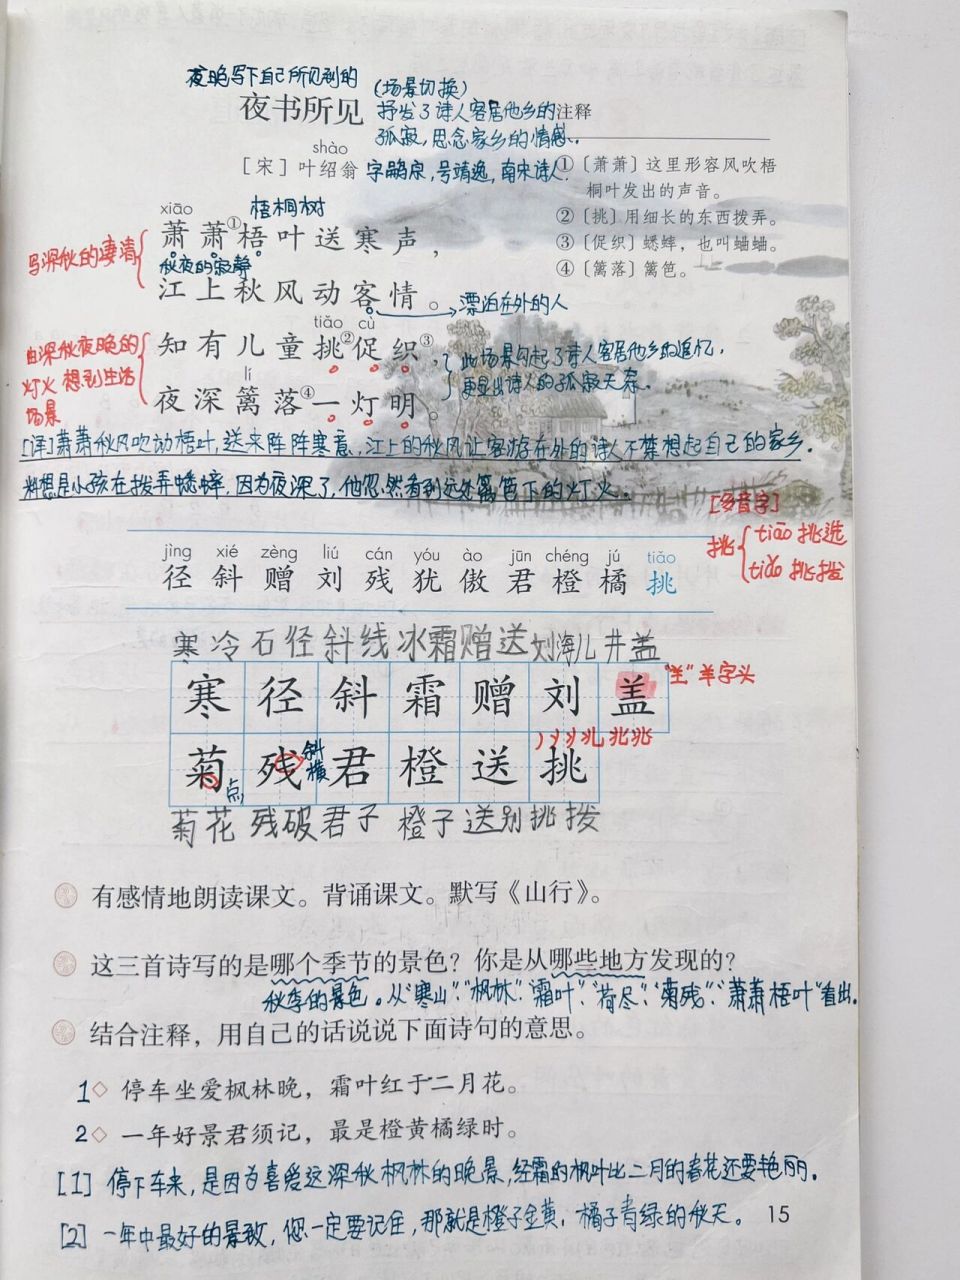 夜晚写下自己所见到的
夜书所见
(场景切换)
抒发了诗人客居他乡的
孤寂,思念家乡的情感.
注释
shào
[宋]叶绍翁 字嗣宗,号靖逸,南宋诗人.
①〔萧萧〕这里形容风吹梧
桐叶发出的声音。
②〔挑〕用细长的东西拨弄。
③〔促织〕蟋蟀,也叫蛐蛐。
④〔篱落〕篱笆。
xiāo 梧桐树
萧萧①梧叶送寒声,
写深秋的凄清
秋夜的寂静
江上秋风动客情。
漂泊在外的人
tiǎo cù
知有儿童挑②促织③,
由深秋夜晚的
灯火想到生活
场景
lí
夜深篱落④一灯明。
此场景勾起了诗人客居他乡的追忆,
更显出诗人的孤寂无奈.
[译]萧萧秋风吹动梧叶,送来阵阵寒意,江上的秋风让客游在外的诗人不禁想起自己的家乡.
料想是小孩在拨弄蟋蟀,因为夜深了,他忽然看到远处篱笆下的灯火.
[多音字]
挑 tiāo 挑选
tiǎo 挑拨
jìng xié zèng liú cán yóu ào jūn chéng jú tiǎo
径 斜 赠 刘 残 犹 傲 君 橙 橘 挑
寒冷 石径 斜线 冰霜 赠送 刘海儿 井盖
寒 径 斜 霜 赠 刘 盖
"⺷"羊字头
菊 残 君 橙 送 挑
点
斜横
菊花 残破 君子 橙子 送别 挑拨
有感情地朗读课文。背诵课文。默写《山行》。
这三首诗写的是哪个季节的景色?你是从哪些地方发现的?
秋季的景色。从"寒山"、"枫林"、"霜叶"、"荷尽"、"菊残"、"萧萧梧叶"看出.
结合注释,用自己的话说说下面诗句的意思。
1◇ 停车坐爱枫林晚,霜叶红于二月花。
2◇ 一年好景君须记,最是橙黄橘绿时。
[1] 停下车来,是因为喜爱这深秋枫林的晚景,经霜的枫叶比二月的春花还要艳丽.
[2] 一年中最好的景致,您一定要记住,那就是橙子金黄,橘子青绿的秋天。
15